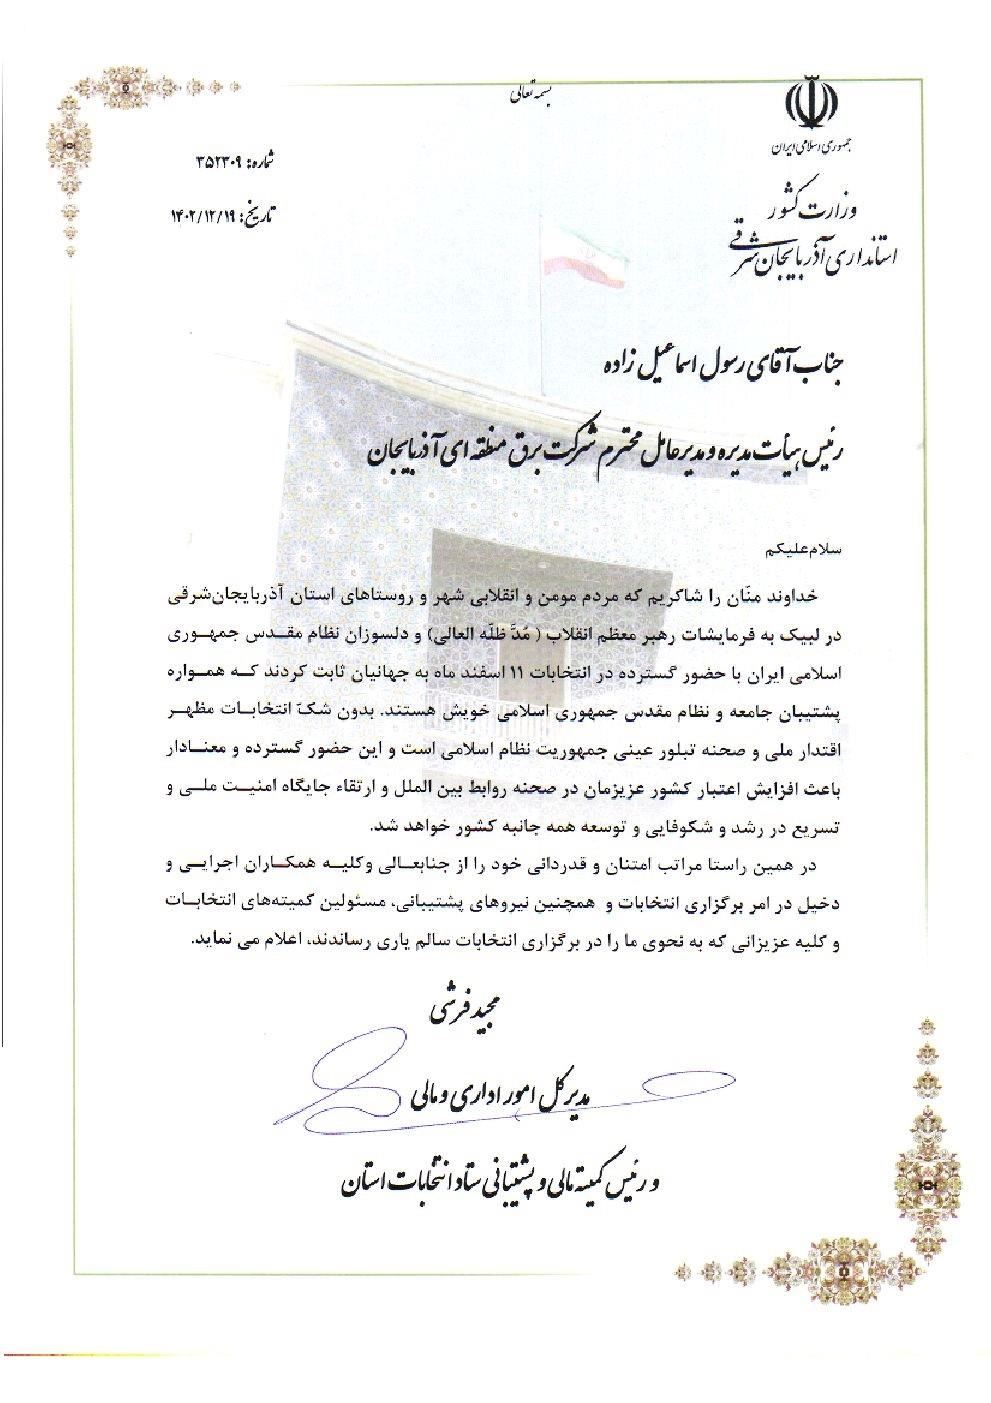 بسمه تعالی
جمهوری اسلامی ایران
وزارت کشور
استانداری آذربایجان شرقی
شماره: ۳۵۲۳۰۹
تاریخ: ۱۴۰۲/۱۲/۱۹
جناب آقای رسول اسماعیل زاده
رئیس هیأت مدیره و مدیرعامل محترم شرکت برق منطقه ای آذربایجان
سلام علیکم
خداوند منّان را شاکریم که مردم مومن و انقلابی شهر و روستاهای استان آذربایجان‌شرقی
در لبیک به فرمایشات رهبر معظم انقلاب ( مُدَّ ظلّه العالی) و دلسوزان نظام مقدس جمهوری
اسلامی ایران با حضور گسترده در انتخابات ۱۱ اسفند ماه به جهانیان ثابت کردند که همواره
پشتیبان جامعه و نظام مقدس جمهوری اسلامی خویش هستند. بدون شکّ انتخابات مظهر
اقتدار ملی و صحنه تبلور عینی جمهوریت نظام اسلامی است و این حضور گسترده و معنادار
باعث افزایش اعتبار کشور عزیزمان در صحنه روابط بین الملل و ارتقاء جایگاه امنیت ملی و
تسریع در رشد و شکوفایی و توسعه همه جانبه کشور خواهد شد.
در همین راستا مراتب امتنان و قدردانی خود را از جنابعالی وکلیه همکاران اجرایی و
دخیل در امر برگزاری انتخابات و همچنین نیروهای پشتیبانی، مسئولین کمیته‌های انتخابات
و کلیه عزیزانی که به نحوی ما را در برگزاری انتخابات سالم یاری رساندند، اعلام می نماید.
مجید فرشی
مدیرکل امور اداری و مالی
و رئیس کمیته مالی و پشتیبانی ستاد انتخابات استان